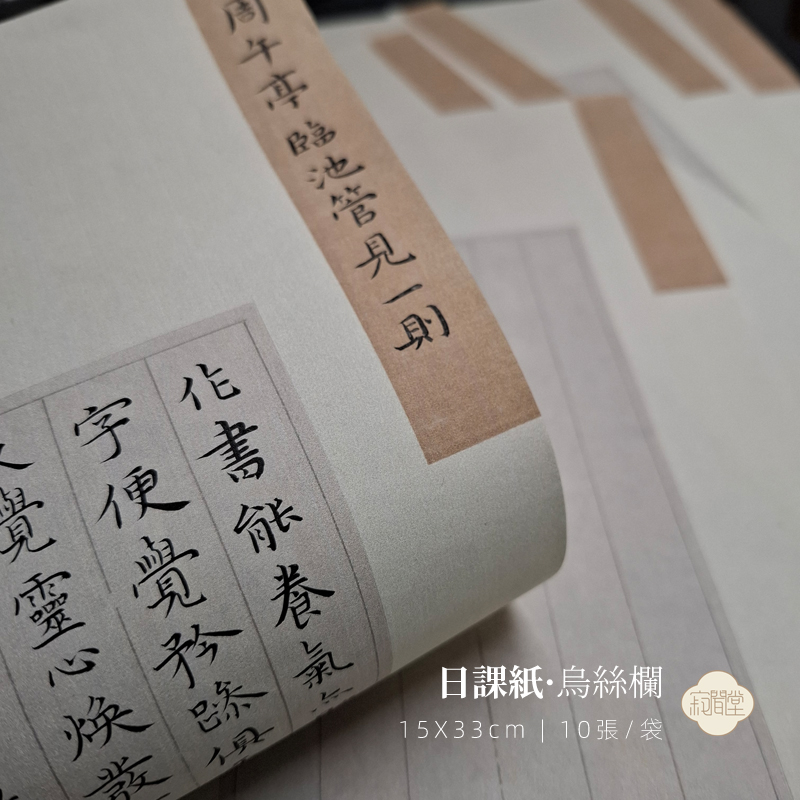 周午亭臨池管見一則
作書能養氣
字便覺矜躁俱
覺靈心煥發
日課紙·烏絲欄
15X33cm | 10張/袋
寂間堂